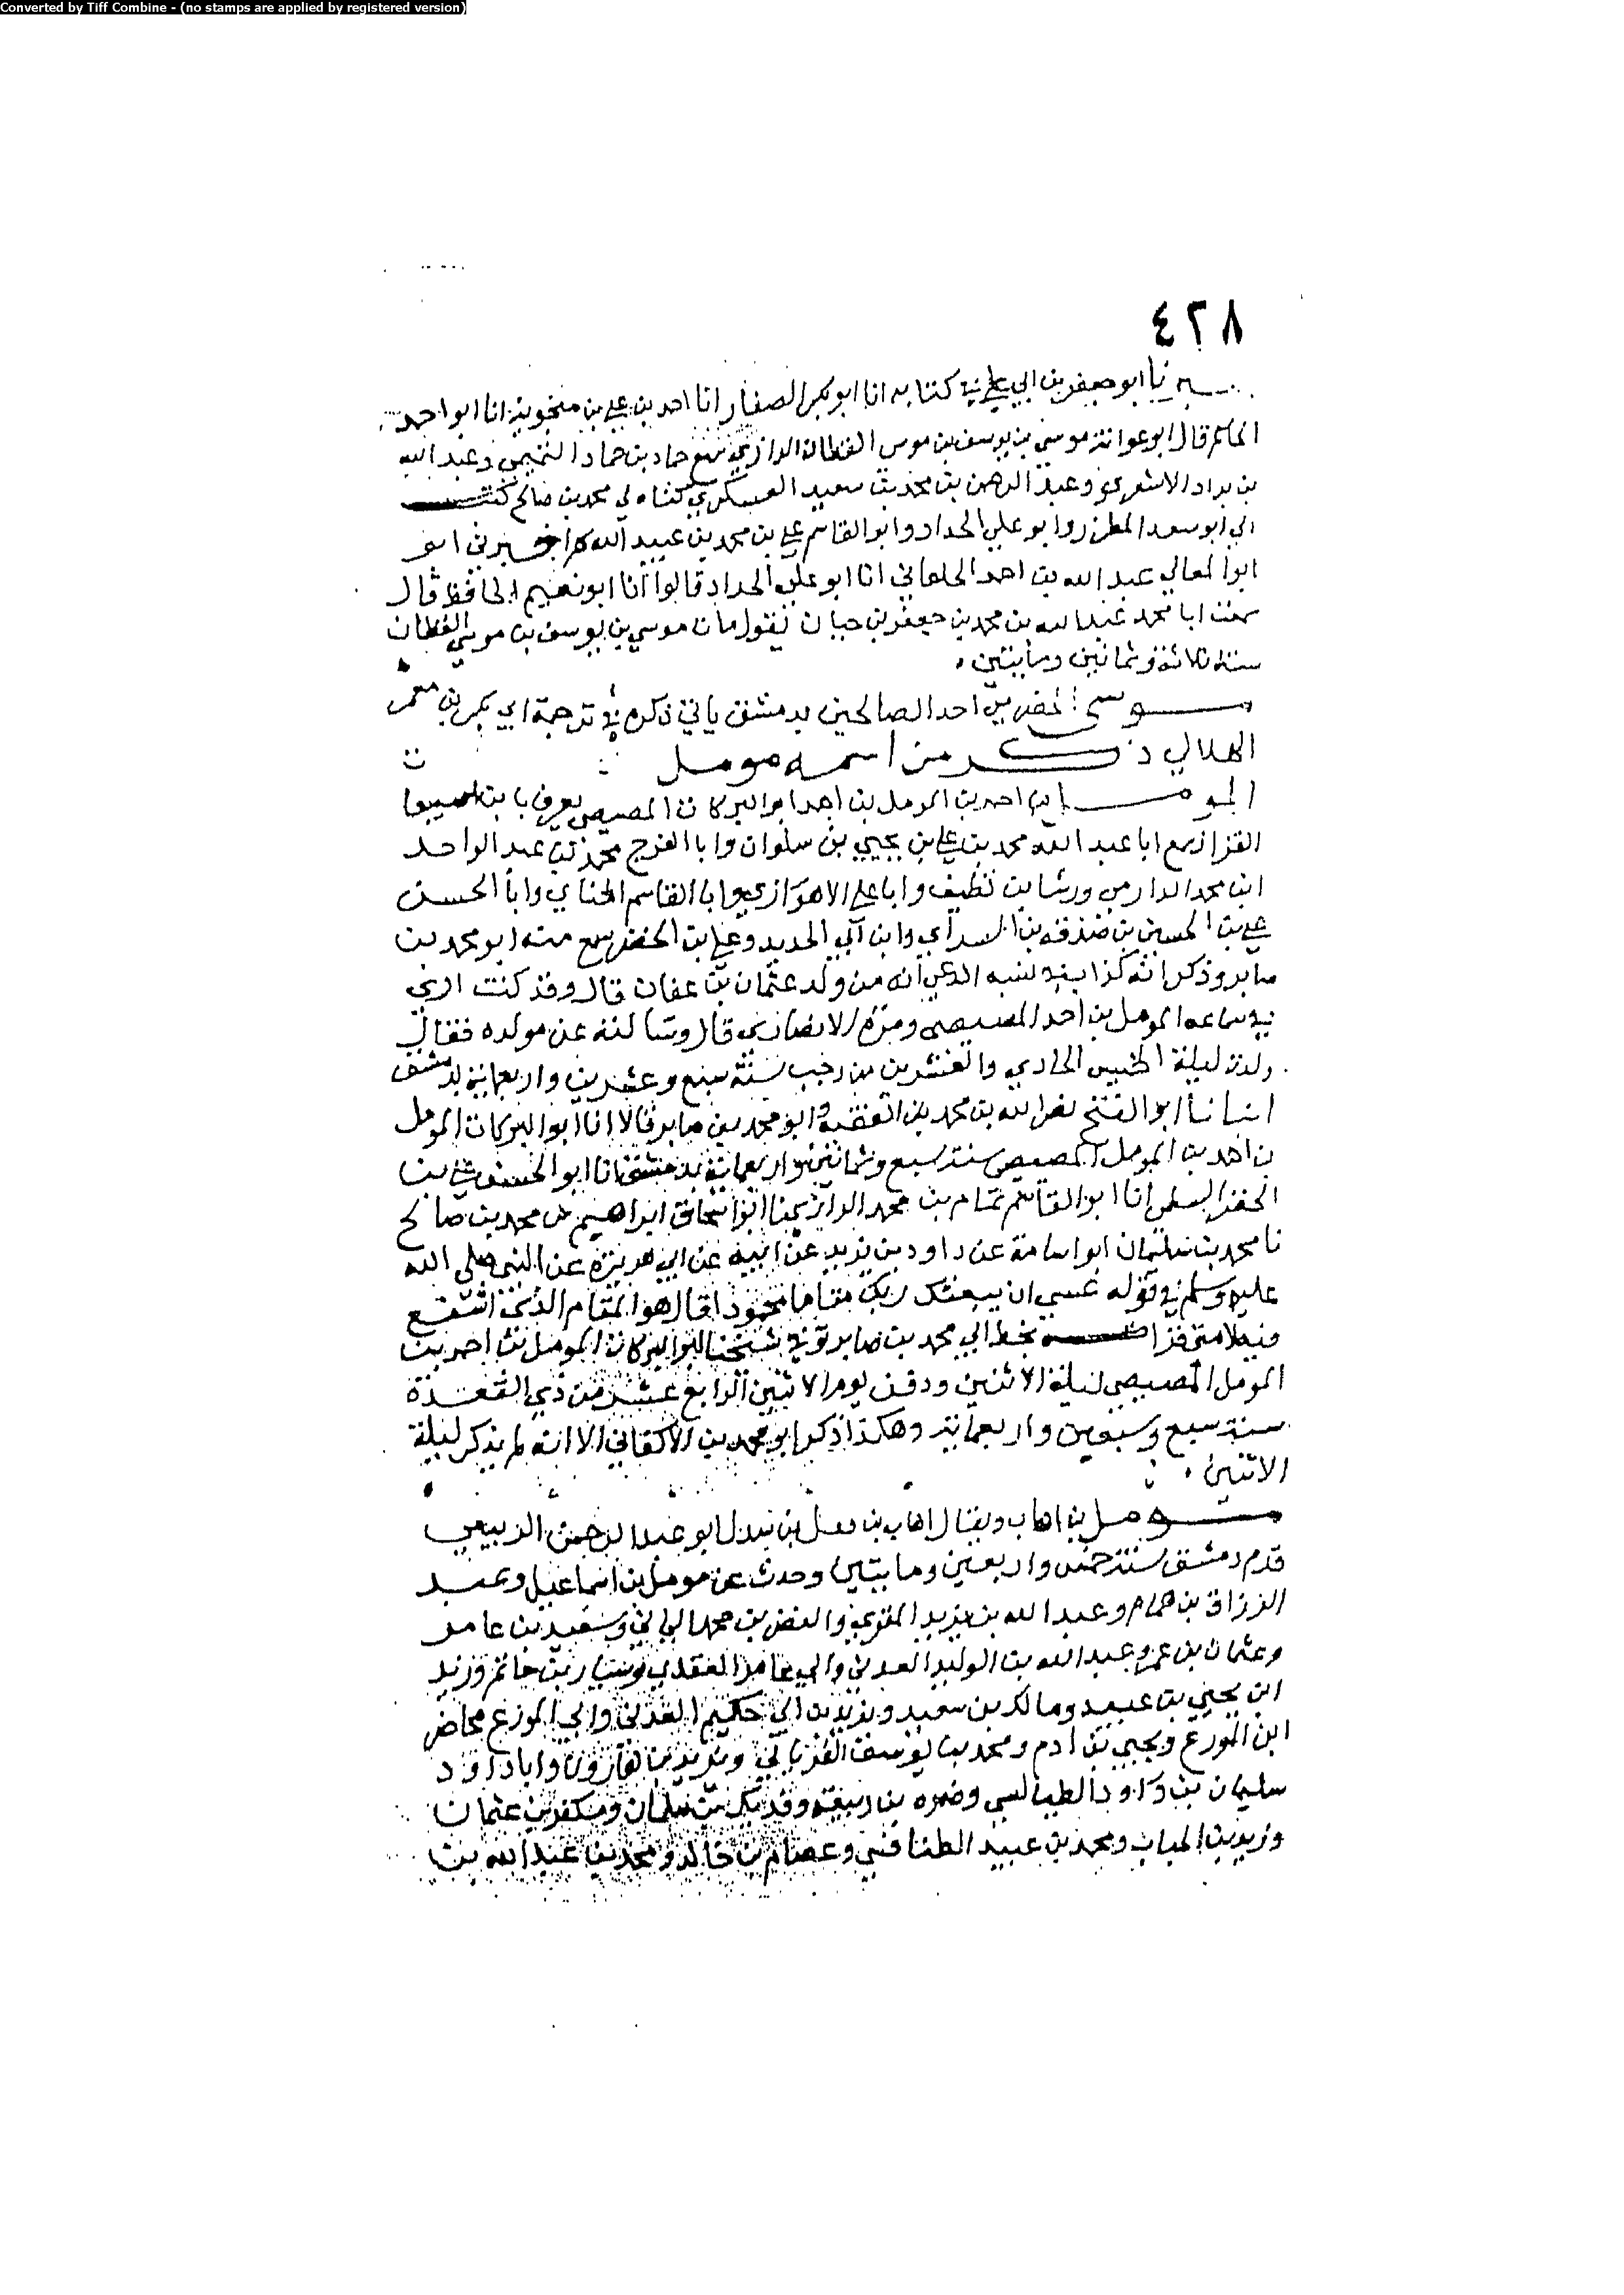 Converted by Tiff Combine - (no stamps are applied by registered version)
٤٢٨
نا ابو جعفر بن ابي علي في كتابه انا ابو بكر الصفار انا احمد بن علي بن منجويه انا ابو احمد
الحاكم قال ابو عوانة موسى بن يوسف بن موسى القطان الرازي سمع حماد بن حماد التميمي وعبد الله
بن براد الاشعري وعبد الرحمن بن محمد بن سعيد العسكري كناه لي محمد بن صالح كتب
الي ابو سعد المطرز وابو علي الحداد وابو القاسم علي بن محمد بن عبيد الله واخبرني
ابو المعالي عبد الله بن احمد الحلواني انا ابو علي الحداد قالوا انا ابو نعيم الحافظ قال
سمعت ابا محمد عبد الله بن محمد بن جعفر بن حيان يقول مات موسى بن يوسف بن موسى القطان
سنة ثلاثة وثمانين ومايتين
موسى احد الصالحين بدمشق ياتي ذكره في ترجمة ابي بكر بن معمر
الهلالي ذكر من اسمه مومل
المومل بن احمد بن المومل بن احمد ابو البركات المصيصي يعرف بابن
القزاز سمع ابا عبد الله محمد بن علي بن يحيى بن سلوان وابا الفرج محمد بن عبد الواحد
ابن محمد الدارمي ورشا بن نظيف وابا علي الاهوازي وابا القاسم الحناي وابا الحسن
علي بن الحسين بن صدقة بن السرابي وابن ابي الحديد وعلي بن الخضر سمع منه ابو محمد بن
صابر وذكر انه كذاب في نسبه ادعى انه من ولد عثمان بن عفان قال وقد كنت اري
في سماعه المومل بن احمد المصيصي ومرة الانصاري قال وسالته عن مولده فقال
ولدت ليلة الخميس الحادي والعشرين من رجب سنة سبع وعشرين واربعماية بدمشق
انبانا ابو الفتح نصر الله بن محمد بن الفقيه وابو محمد بن صابر قالا انا ابو البركات المومل
بن احمد بن المومل المصيصي سنة سبع وثمانين واربعماية بدمشق انا ابو الحسن علي بن
الخضر السلمي انا ابو القاسم تمام بن محمد الرازي نا ابو اسحاق ابراهيم بن محمد بن صالح
نا محمد بن سليمان ابو اسامة عن داود بن يزيد عن ابيه عن ابي هريرة عن النبي صلى الله
عليه وسلم في قوله عسى ان يبعثك ربك مقاما محمودا قال هو المقام الذي اشفع
فيه لامتي قرات بخط ابي محمد بن صابر توفي شيخنا ابو البركات المومل بن احمد بن
المومل المصيصي ليلة الاثنين ودفن يوم الاثنين الرابع عشر من ذي القعدة
سنة سبع وسبعين واربعماية وهكذا ذكر ابو محمد بن الاكفاني الا انه لم يذكر ليلة
الاثنين
مومل بن اهاب ويقال اهاب بن قفل بن سدل ابو عبد الرحمن الربيعي
قدم دمشق سنة خمس واربعين ومايتين وحدث عن مومل بن اسماعيل وعبد
الرزاق بن همام وعبد الله بن يزيد المقري والنضر بن محمد وسعيد بن عامر
وعثمان بن عمر وعبد الله بن الوليد العدني وابي عامر العقدي وسيار بن حاتم وزيد
ابن يحيى بن عبيد ومالك بن سعير ويزيد بن ابي حكيم العدني وابي المورع محاضر
ابن المورع ويحيى بن ادم ومحمد بن يوسف الفريابي ويزيد بن هارون وابا داود
سليمان بن داود الطيالسي وضمره بن ربيعة وفديك بن سلمان ومسكين عثمان
وزيد بن الحباب ومحمد بن عبيد الطنافسي وعصام بن خالد ومحمد بن عبد الله بن